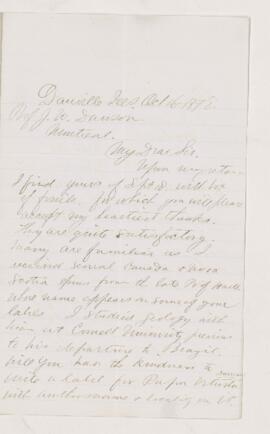 Danville Ills. Oct 16 1878
Prof J. W. Dawson
Montreal.
My Dear Sir.
Upon my return
I find yours of Sept with box
of fossils for which you will please
accept my heartiest thanks.
They are quite satisfactory.
Many are familiar as
received several Canada & Nova
Scotia specimens from the late Prof Hartt
whose name appears on some of your
labels. I studied geology with
him at Cornell University previous
to his departure to Brazil.
Will you have the kindness to
write a label for Pupa Vetusta
with author name & locality on it.